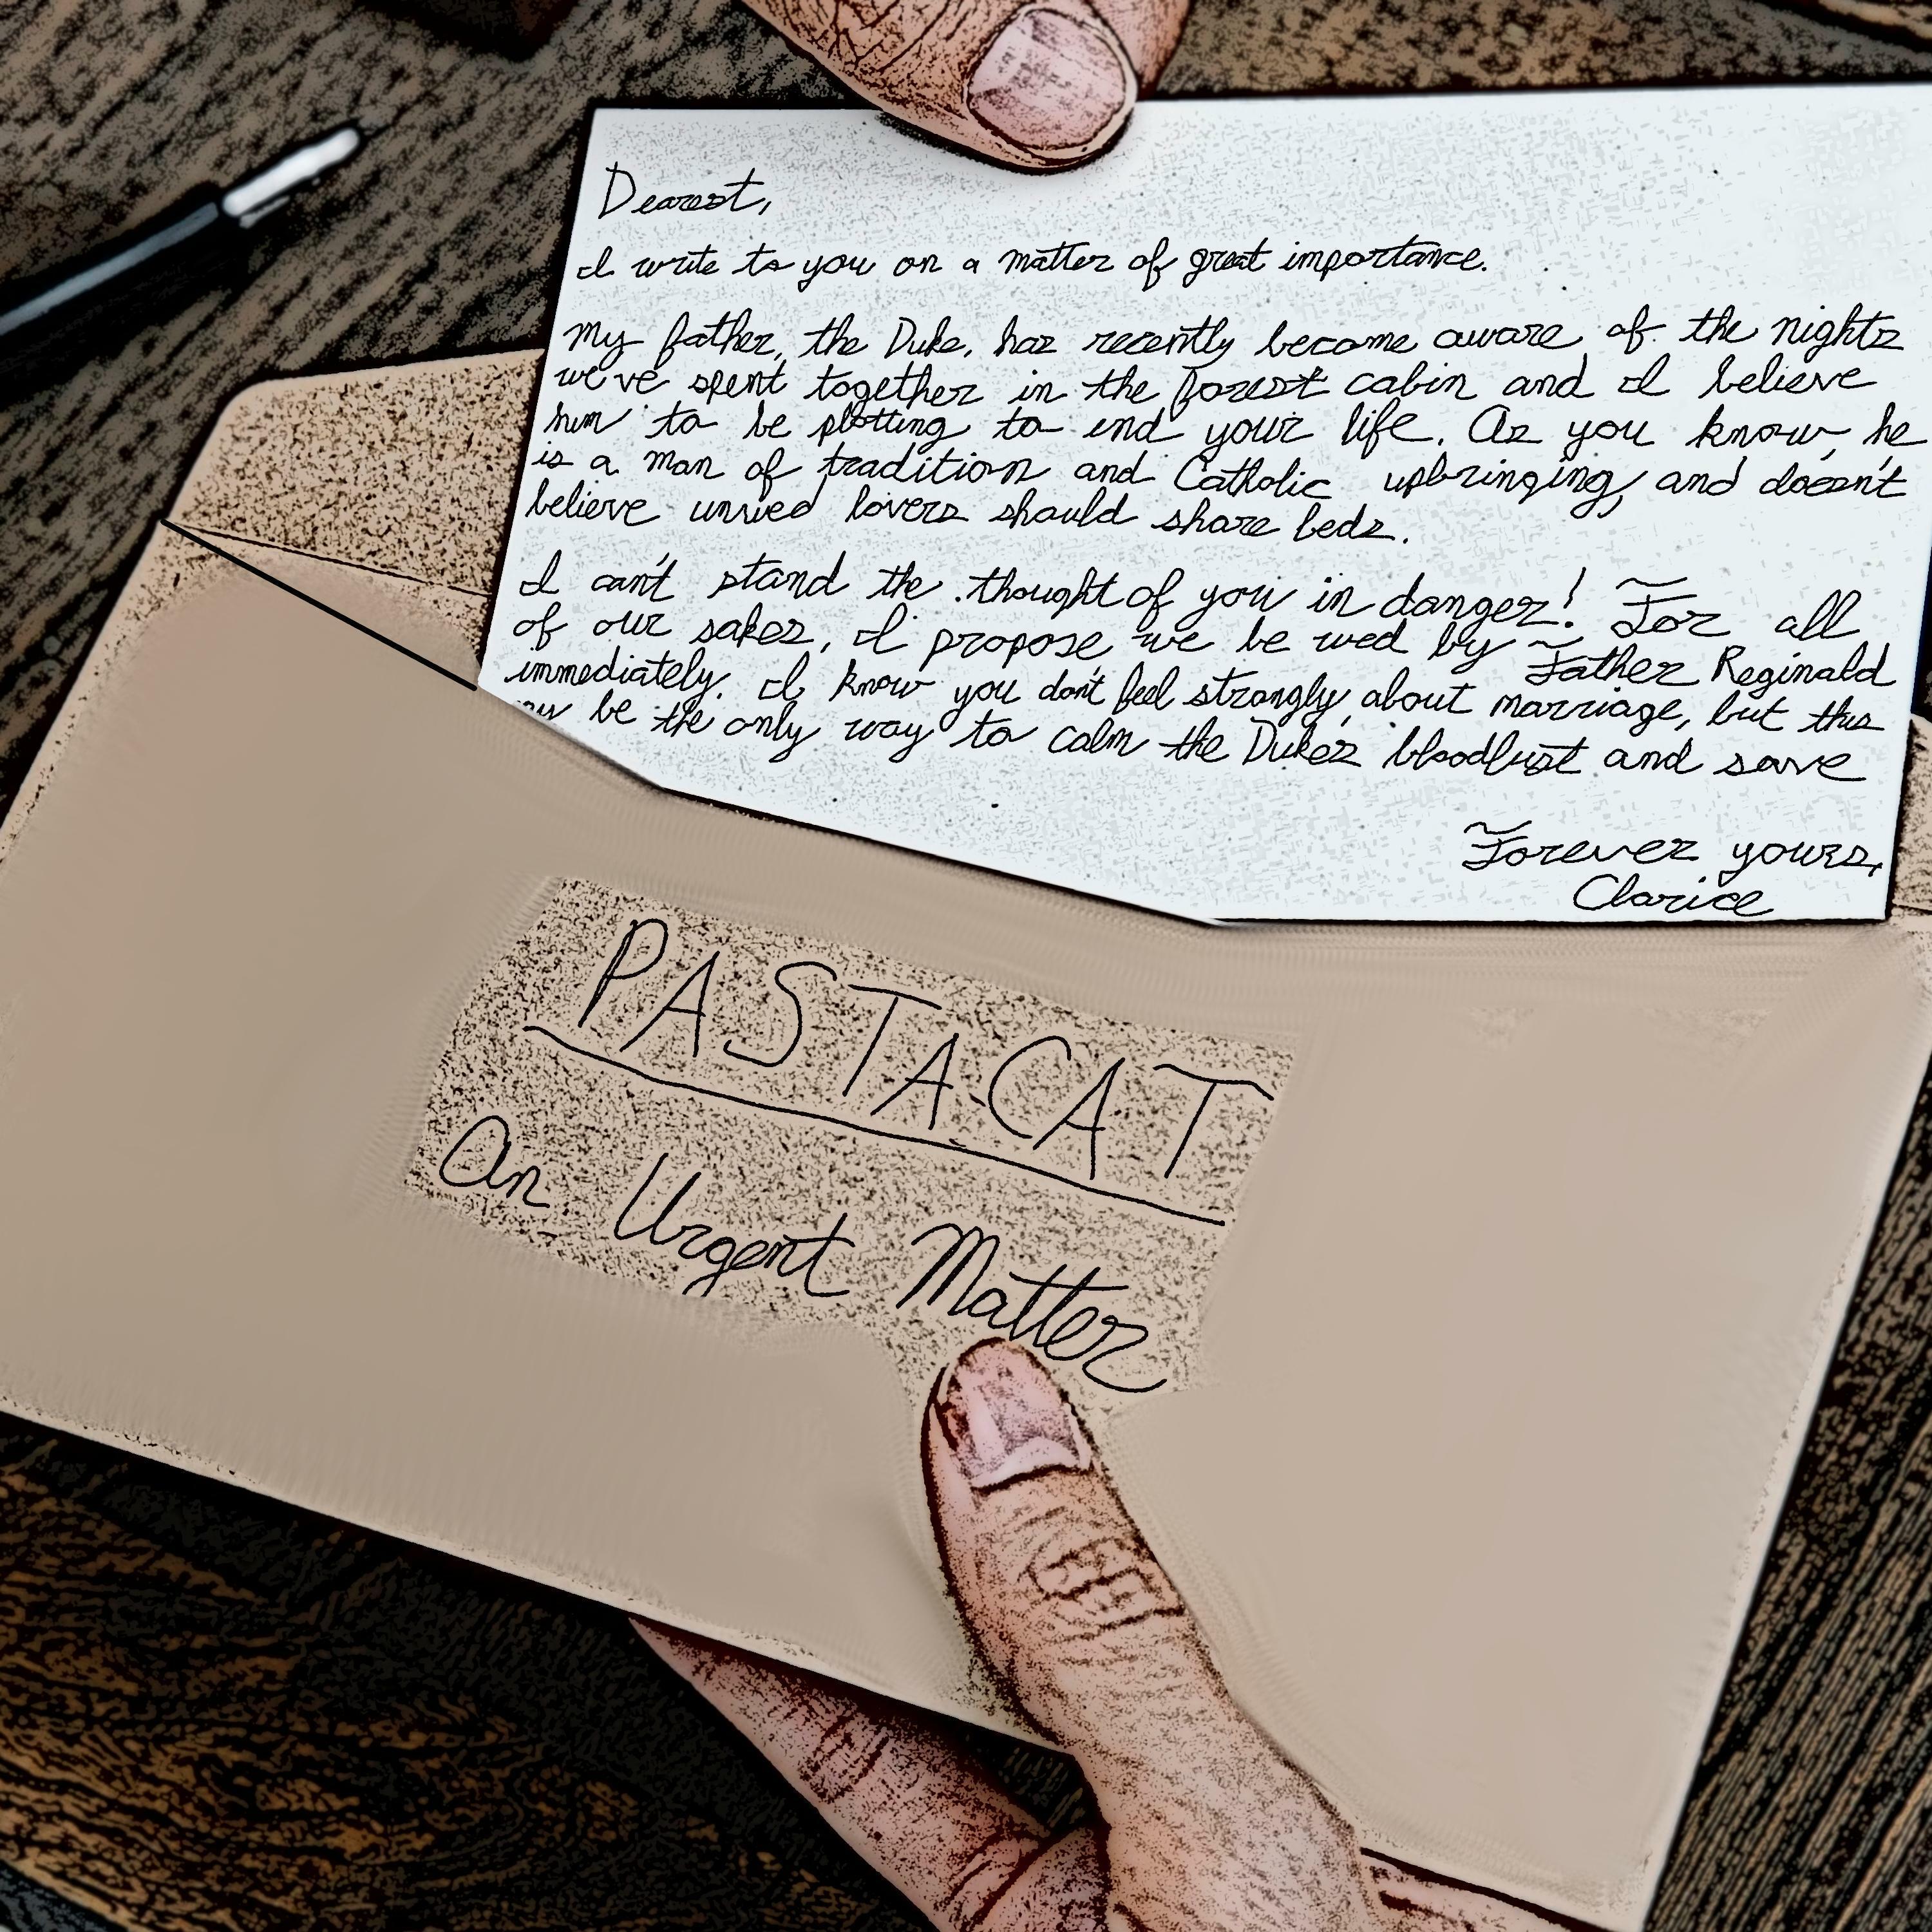 Dearest,
I write to you on a matter of great importance.
My father, the Duke, has recently become aware of the nights
we've spent together in the forest cabin and I believe
him to be plotting to end your life. As you know, he
is a man of tradition and Catholic upbringing, and doesn't
believe unwed lovers should share beds.
I can't stand the thought of you in danger! For all
of our sakes, I propose we be wed by Father Reginald
immediately. I know you don't feel strongly about marriage, but this
be the only way to calm the Dukes bloodlust and save
Forever yours,
Clarice
PASTACAT
An Urgent Matter